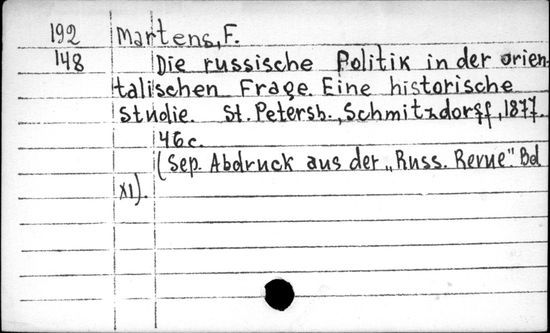 192 Martens, F.
148 Die russische Politik in der orien-
talischen Frage. Eine historische
Studie. St. Petersb., Schmitzdorff, 1877.
46c.
(Sep. Abdruck aus der „Russ. Revue". Bd
XI).